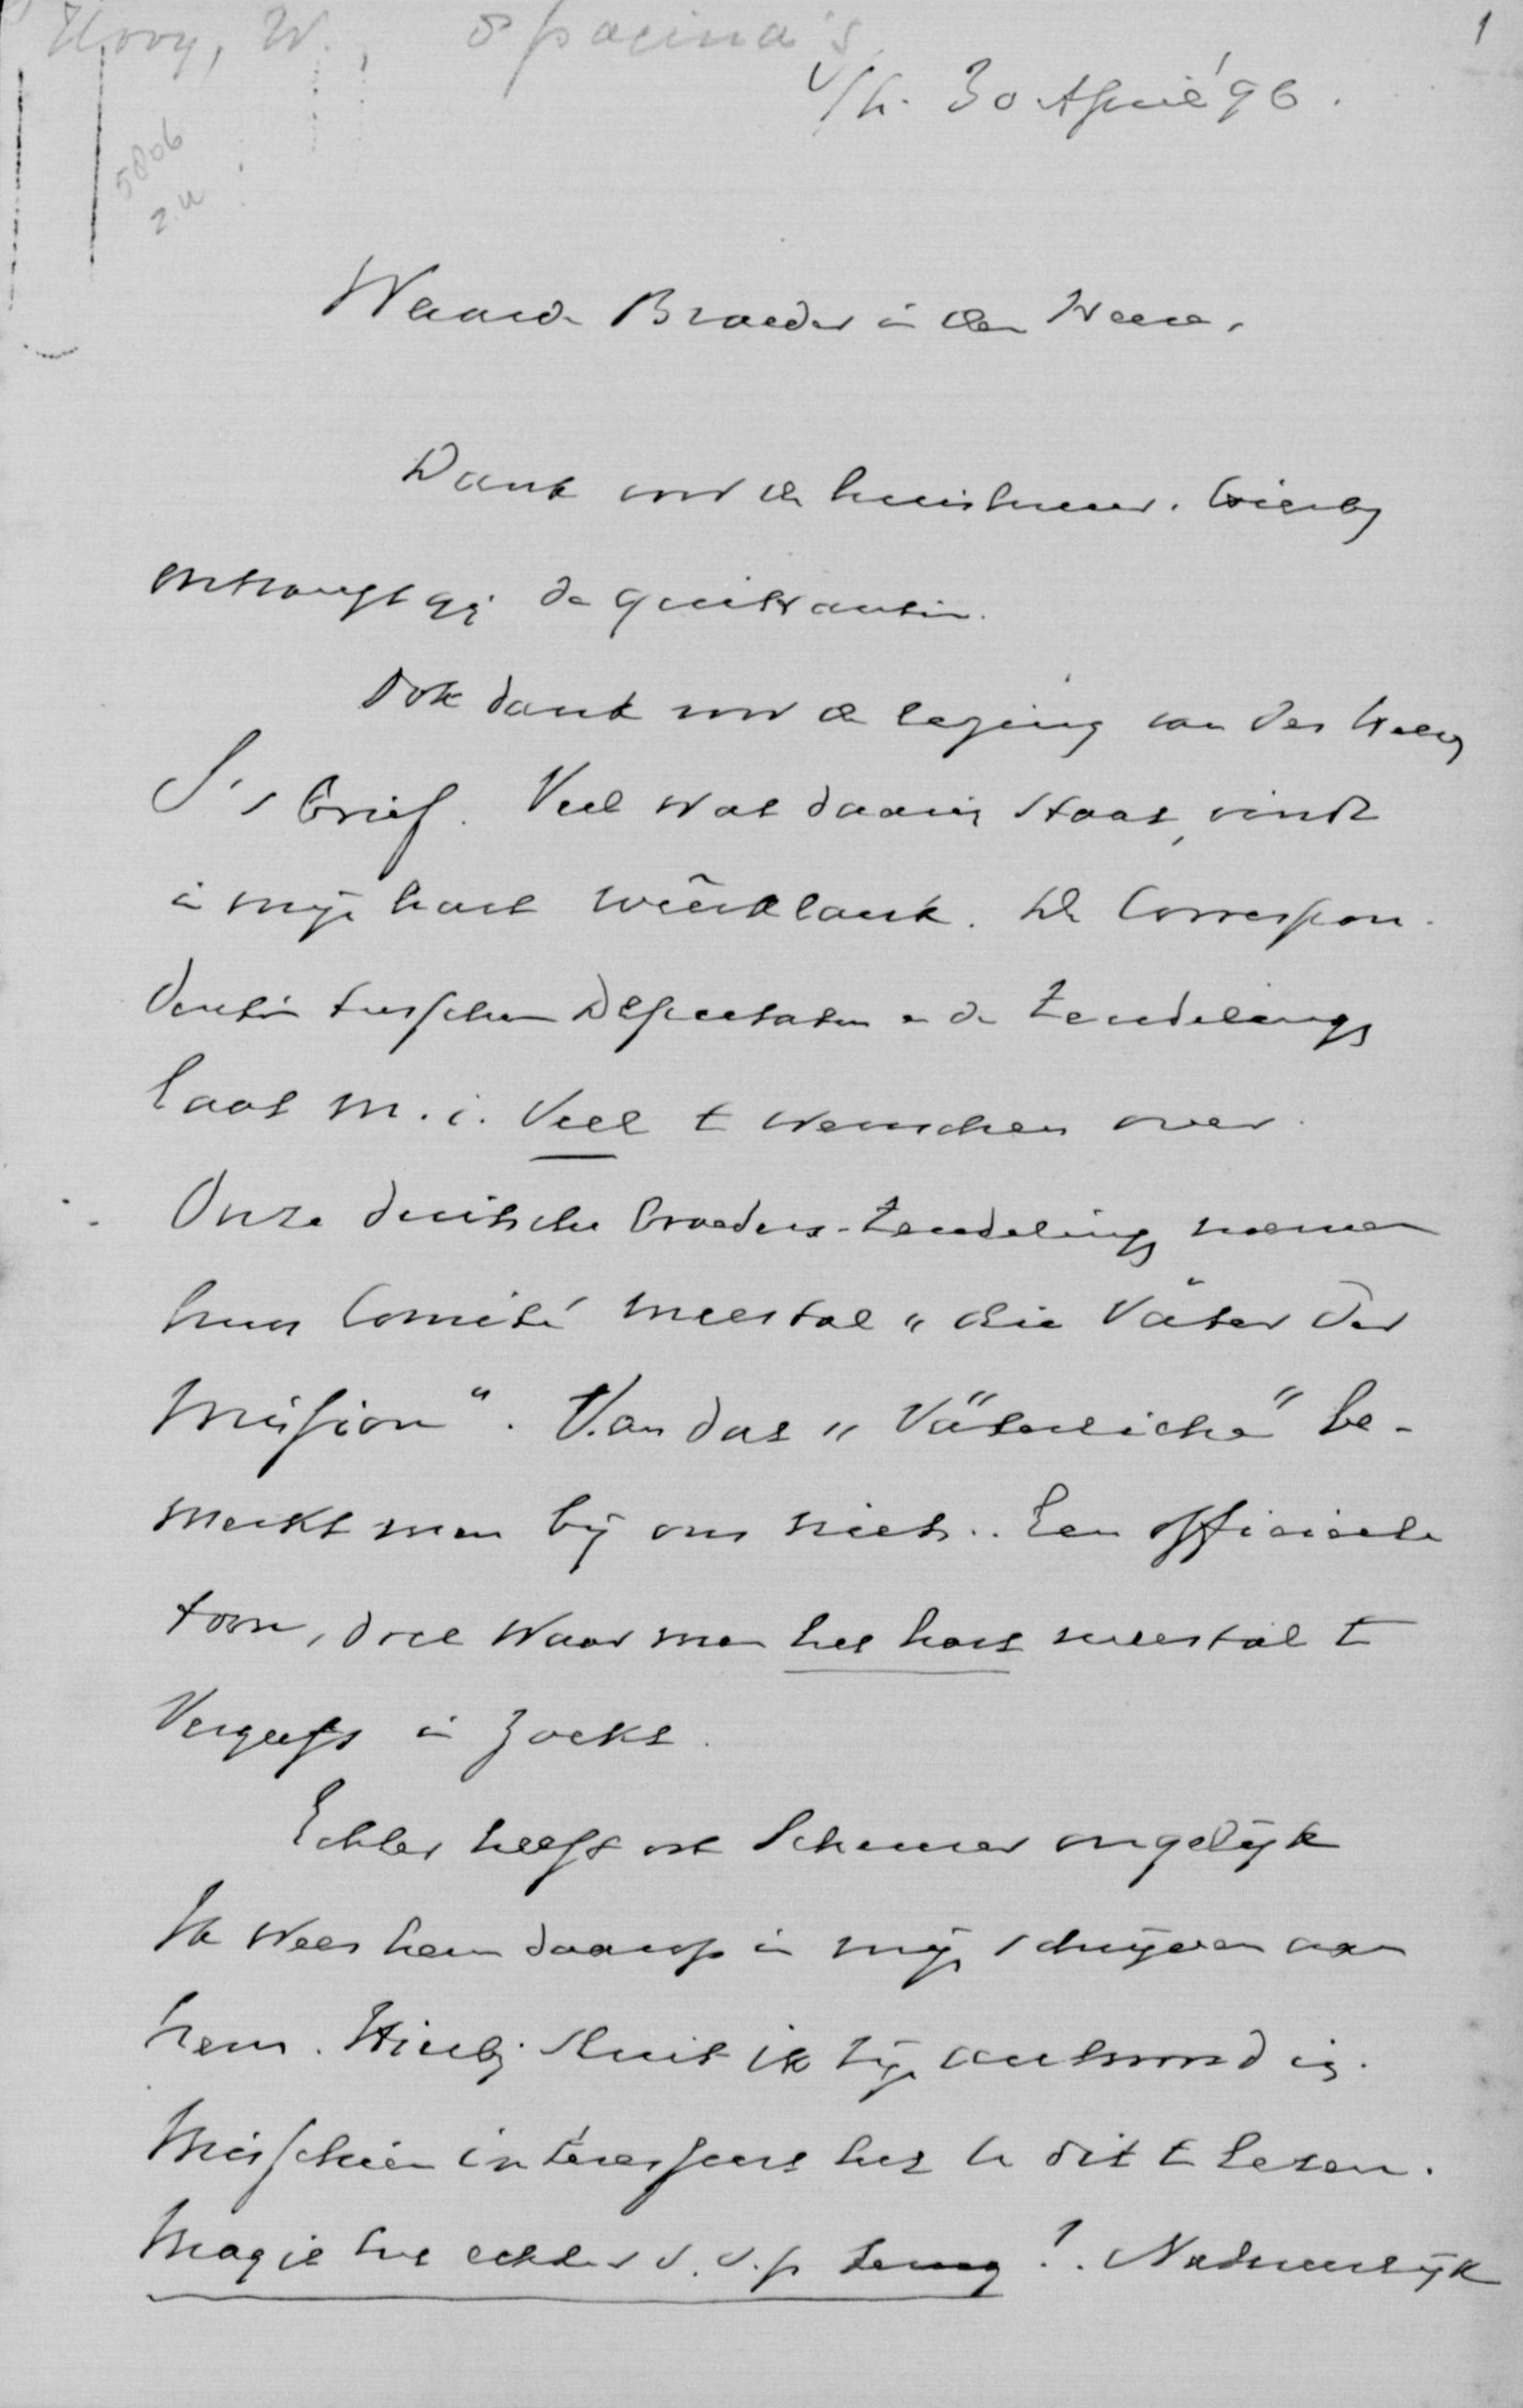 Hovy, W. 8 pagina's
1
V/h. 30 April '96.
5806
2.u
Waarde Broeder in den Heere,
Dank voor de huishuur. Hierbij
ontvangt gij de quitantie.
Ook dank voor de lezing van den Heer
S's brief. Veel wat daarin staat, vindt
in mijn hart weêrklank. De Correspon-
dentie tusschen Deputaten en de Zendelingen
laat m.i. veel te wenschen over.
Onze duitsche broeders-Zendelingen noemen
hun Comité meestal "die Väter der
Mission". Van dat "Väterliche" be-
merkt men bij ons niets.. Een officieele
toon, doel waar men het hart meestal te
vergeefs in zoekt.
Echter heeft ook Scheurer ongelijk
Ik wees hem daarop in mijn schrijven aan
hem. Hierbij sluit ik zijn antwoord in.
Misschien interesseert het U dit te lezen.
Mag ik het echter s.v.p. terug?. Natuurlijk